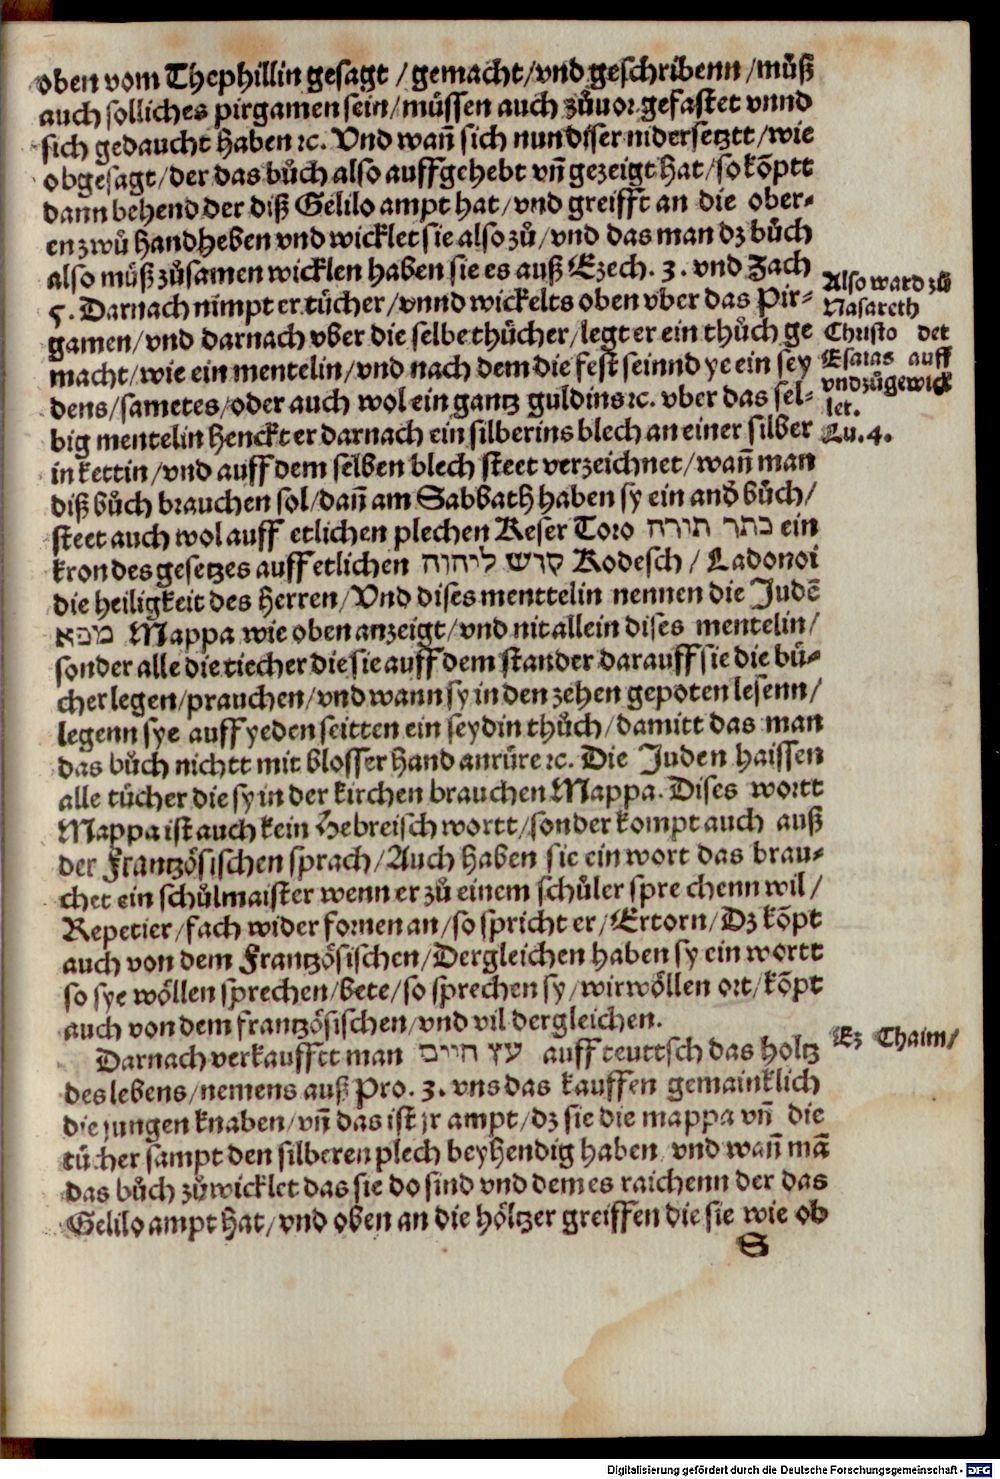 oben vom Thephillin gesagt / gemacht / vnd geschribenn / můß
auch solliches pirgamen sein / můssen auch zůuor gefastet vnnd
sich gedaucht haben ꝛc. Vnd wañ sich nun diser nidersetztt / wie
obgesagt / der das bůch also auffgehebt vñ gezeigt hat / so kõptt
dann behend der diß Gelilo ampt hat / vnd greifft an die ober-
en zwů handheben vnd wicklet sie also zů / vnd das man dz bůch
also můß zůsamen wicklen haben sie es auß Ezech. 3. vnd Zach
5. Darnach nimpt er tücher / vnnd wickelts oben vber das Pir-
gamen / vnd darnach vber die selbe thücher / legt er ein thůch ge
macht / wie ein mentelin / vnd nach dem die fest seinnd ye ein sey
dens / sametes / oder auch wol ein gantz guldins ꝛc. vber das sel-
big mentelin henckt er darnach ein silberins blech an einer silber
in kettin / vnd auff dem selben blech steet verzeichnet / wañ man
diß bůch brauchen sol / dañ am Sabbath haben sy ein and̃ bůch /
steet auch wol auff etlichen plechen Keser Toro כתר תורה ein
kron des gesetzes auff etlichen קודש ליהוה Kodesch / Ladonoi
die heiligkeit des Herren / Vnd dises menttelin nennen die Judẽ
מפא Mappa wie oben anzeigt / vnd nit allein dises mentelin /
sonder alle die tiecher die sie auff dem stander darauff sie die bü-
cher legen / prauchen / vnd wann sy in den zehen gepoten lesenn /
legenn sye auff yeden seitten ein seydin thůch / damitt das man
das bůch nichtt mit blosser hand anrüre ꝛc. Die Juden haissen
alle tücher die sy in der kirchen brauchen Mappa. Dises wortt
Mappa ist auch kein Hebreisch wortt / sonder kompt auch auß
der Frantzösischen sprach / Auch haben sie ein wort das brau-
chet ein schůlmaister wenn er zů einem schůler sprechenn wil /
Repetier / fach wider fornen an / so spricht er / Ertorn / Dz kõpt
auch von dem Frantzösischen / Dergleichen haben sy ein wortt
so sye wöllen sprechen / bete / so sprechen sy / wir wöllen ort / kõpt
auch von dem frantzösischen / vnd vil dergleichen.
Darnach verkaufftt man עץ חיים auff teuttsch das holtz
des lebens / nemens auß Pro. 3. vns das kauffen gemainklich
die jungen knaben / vñ das ist jr ampt / dz sie die mappa vñ die
tücher sampt den silberen plech beyhendig haben vnd wañ mã
das bůch zůwicklet das sie do sind vnd dem es raichenn der das
Gelilo ampt hat / vnd oben an die höltzer greiffen die sie wie ob
S
Also ward zů
Nasareth
Christo der
Esaias auff
vnd zůgewick
let.
Lu. 4.
Ez Thaim /
Digitalisierung gefördert durch die Deutsche Forschungsgemeinschaft - DFG